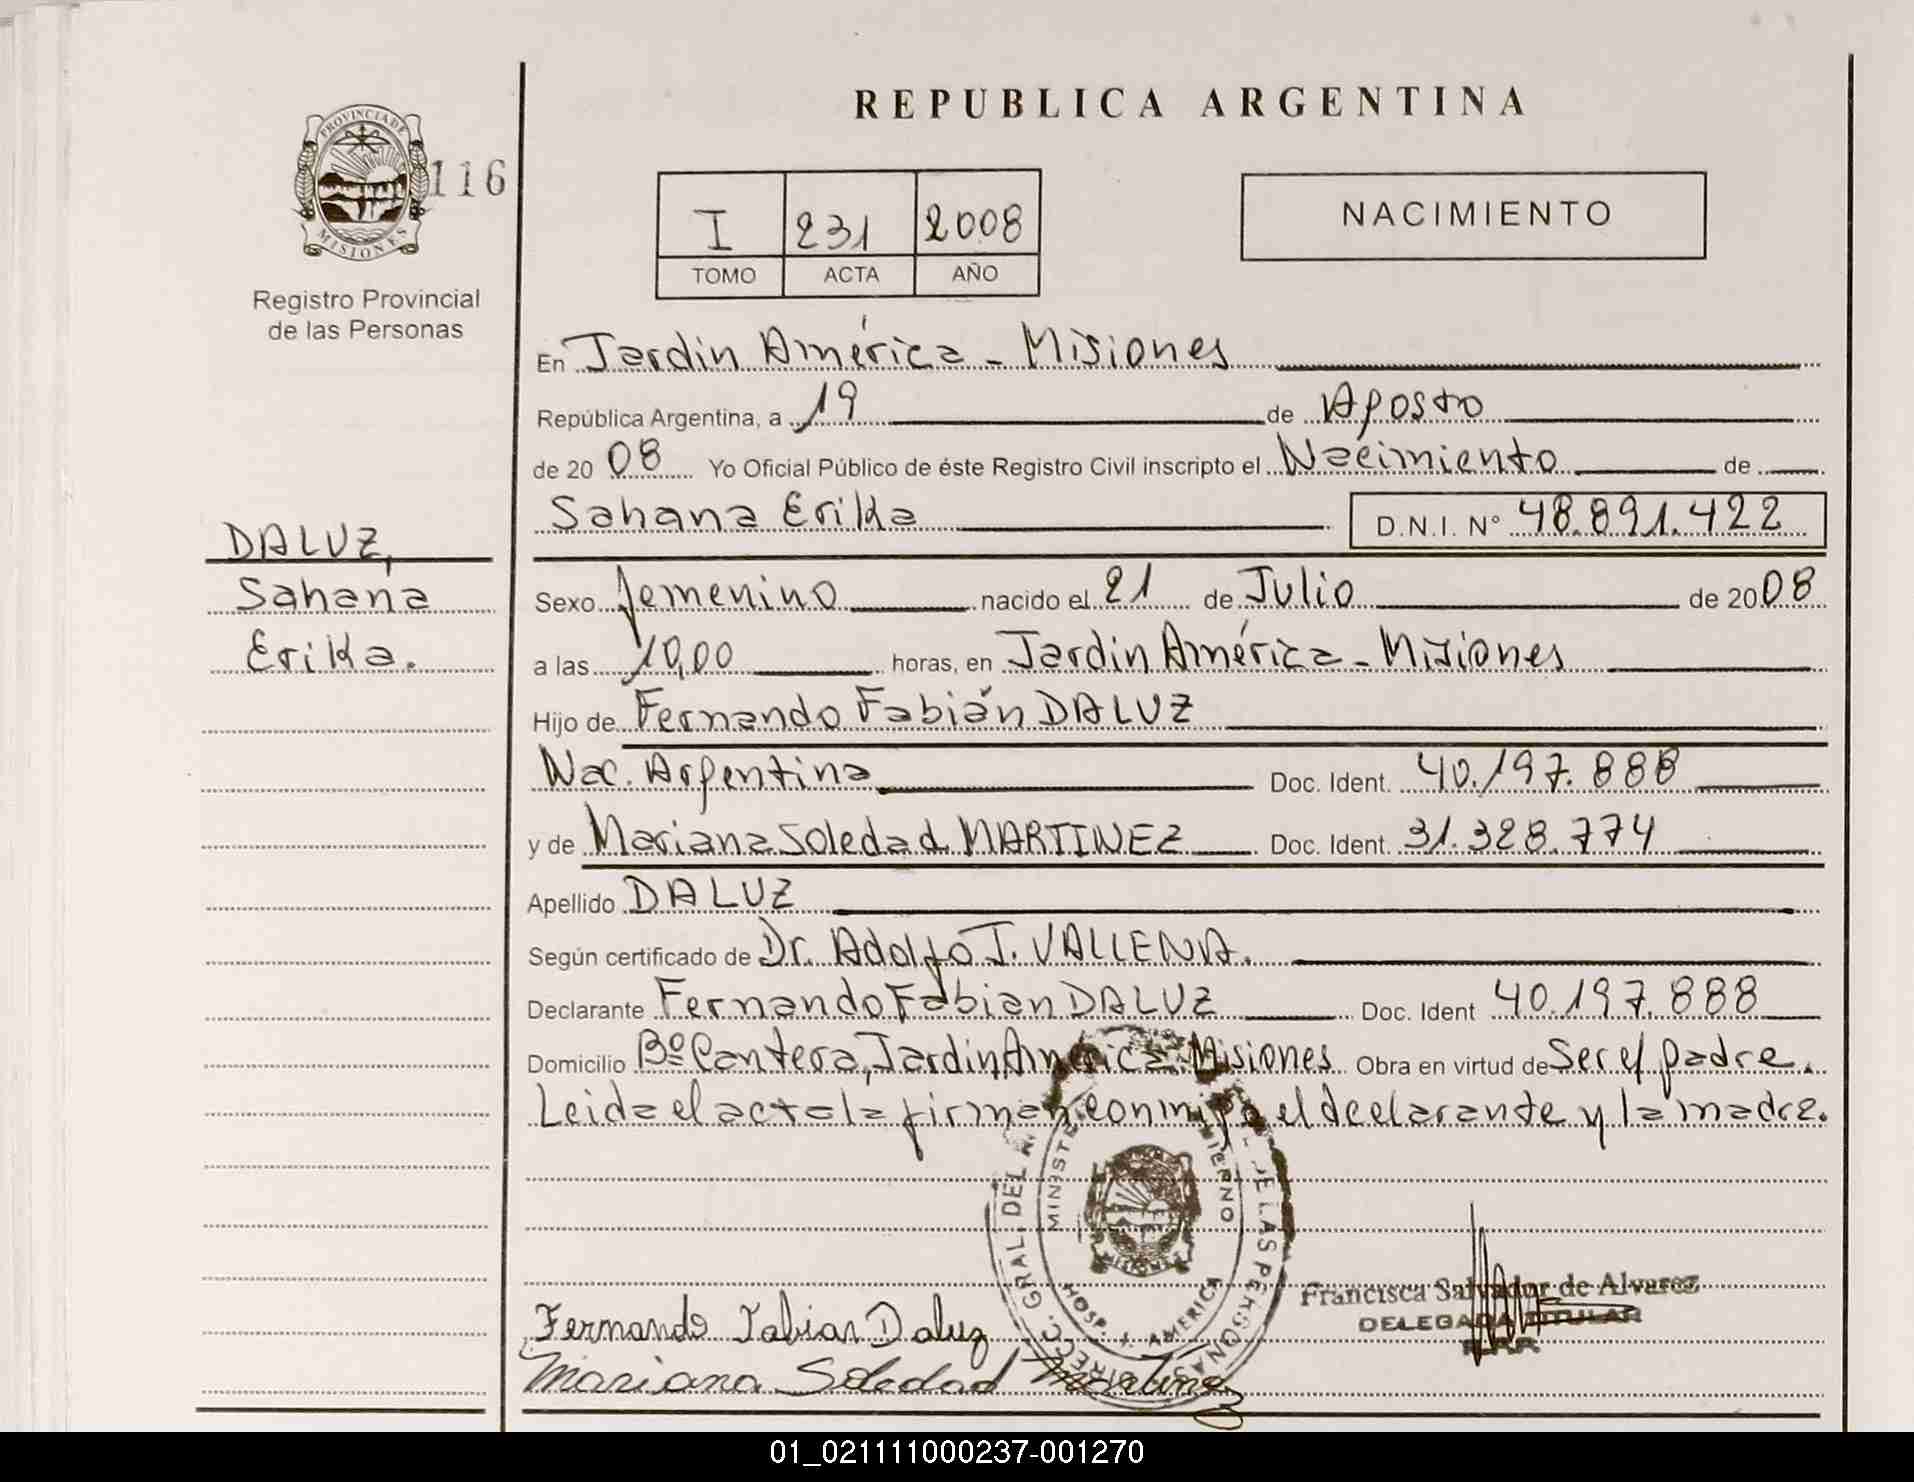 REPUBLICA ARGENTINA
PROVINCIA DE
MISIONES
116
Registro Provincial
de las Personas
I 231 2008
TOMO ACTA AÑO
NACIMIENTO
En Jardin América - Misiones
República Argentina, a 19 de Agosto
de 2008 Yo Oficial Público de éste Registro Civil inscripto el Nacimiento de
Sahana Erika D.N.I. N° 48.891.422
DALUZ,
Sahana
Erika.
Sexo femenino nacido el 21 de Julio de 2008
a las 10,00 horas, en Jardin América - Misiones
Hijo de Fernando Fabián DALUZ
Nac. Argentina Doc. Ident. 40.197.888
y de Mariana Soledad MARTINEZ Doc. Ident. 31.328.774
Apellido DALUZ
Según certificado de Dr. Adolfo J. VALLENA.
Declarante Fernando Fabian DALUZ Doc. Ident 40.197.888
Domicilio Bº Cantera, Jardin América Misiones Obra en virtud de Ser el padre.
Leida el acta la firman conmigo el declarante y la madre.
DIREC. GRAL. DEL DE LAS PERSONAS
HOSP. J. AMERICA
Francisca Salvador de Alvarez
DELEGADA TITULAR
R.P.P.
Fernando Fabian Daluz
Mariana Soledad Martinez
01_021111000237-001270